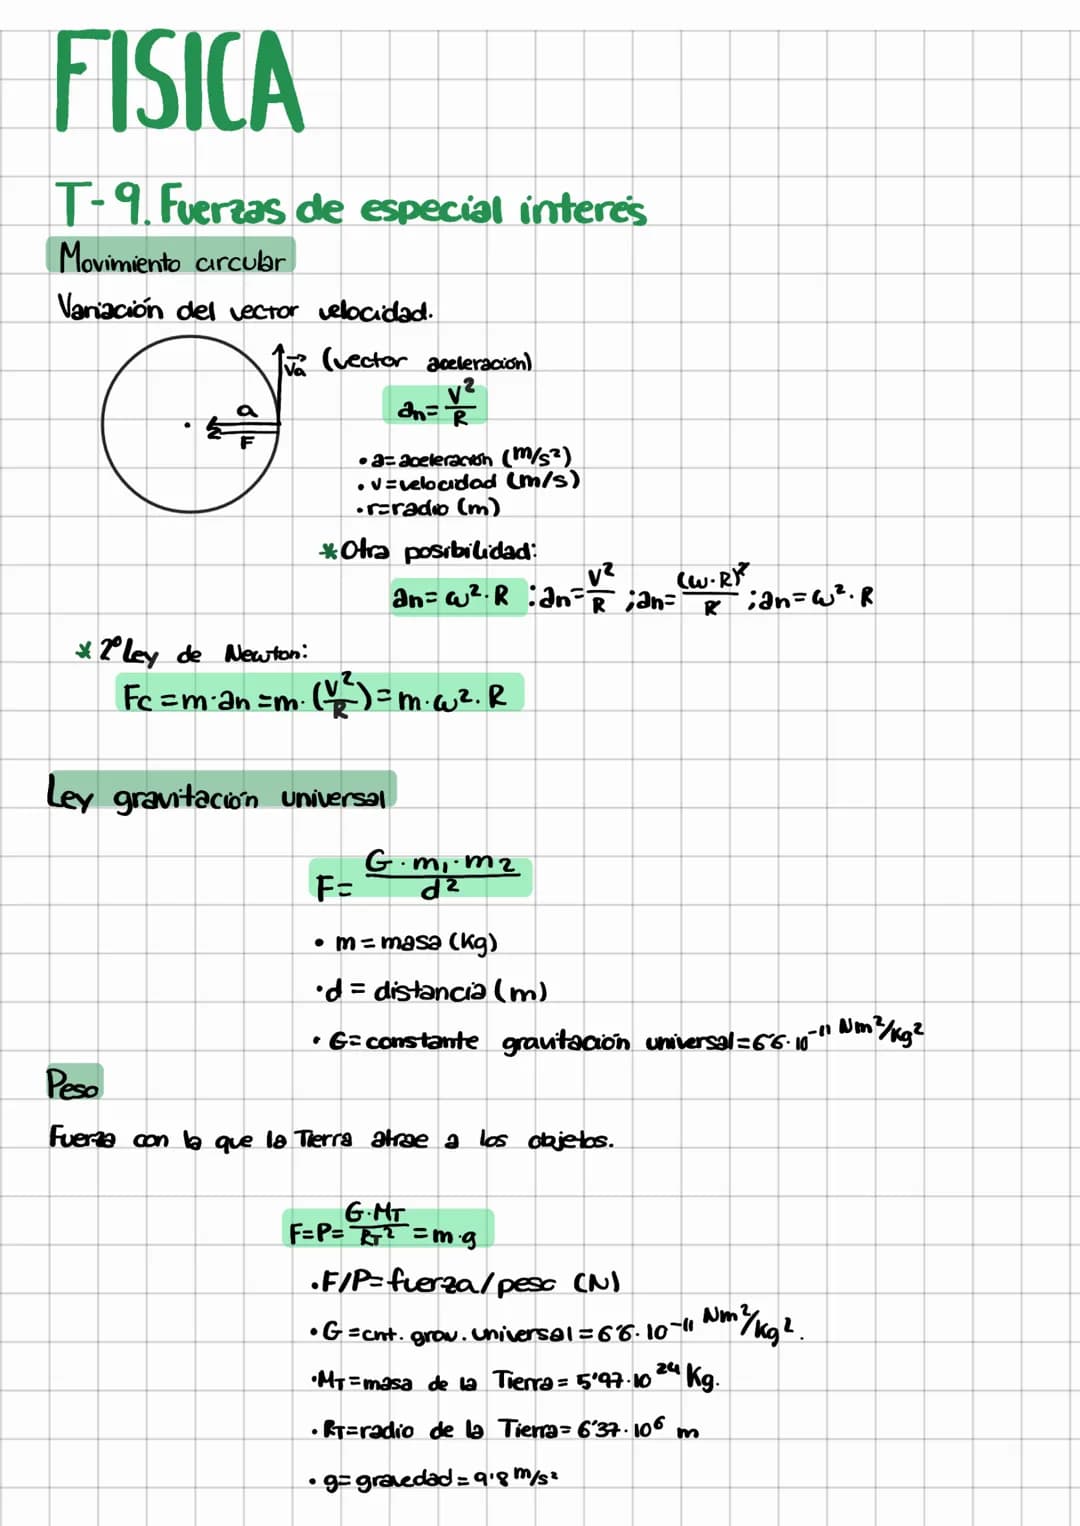 FISICA
T-9. Fuerzas de especial interés
Movimiento circular
Variación del vector velocidad.
Va (vector aceleración)
an= V²/R
a
F
• a= aceleración (m/s²)
• v=velocidad (m/s)
• r=radio (m)
*Otra posibilidad:
an= ω²·R : an= V²/R ; an= (ω·R)²/R ; an= ω²·R
* 2º Ley de Newton:
Fc =m·an =m·(V²/R)= m·ω²·R
Ley gravitación universal
F= G·m₁·m₂/d²
• m = masa (kg)
•d = distancia (m)
• G= constante gravitación universal=6'6·10⁻¹¹ Nm²/kg²
Peso
Fuerza con la que la Tierra atrae a los objetos.
F=P= G·MT/RT² = m·g
•F/P= fuerza/peso (N)
•G =cnt. grav. universal = 6'6·10⁻¹¹ Nm²/kg².
•MT=masa de la Tierra = 5'97·10²⁴ Kg.
• RT=radio de la Tierra= 6'37·10⁶ m
• g= gravedad = 9'8 m/s²